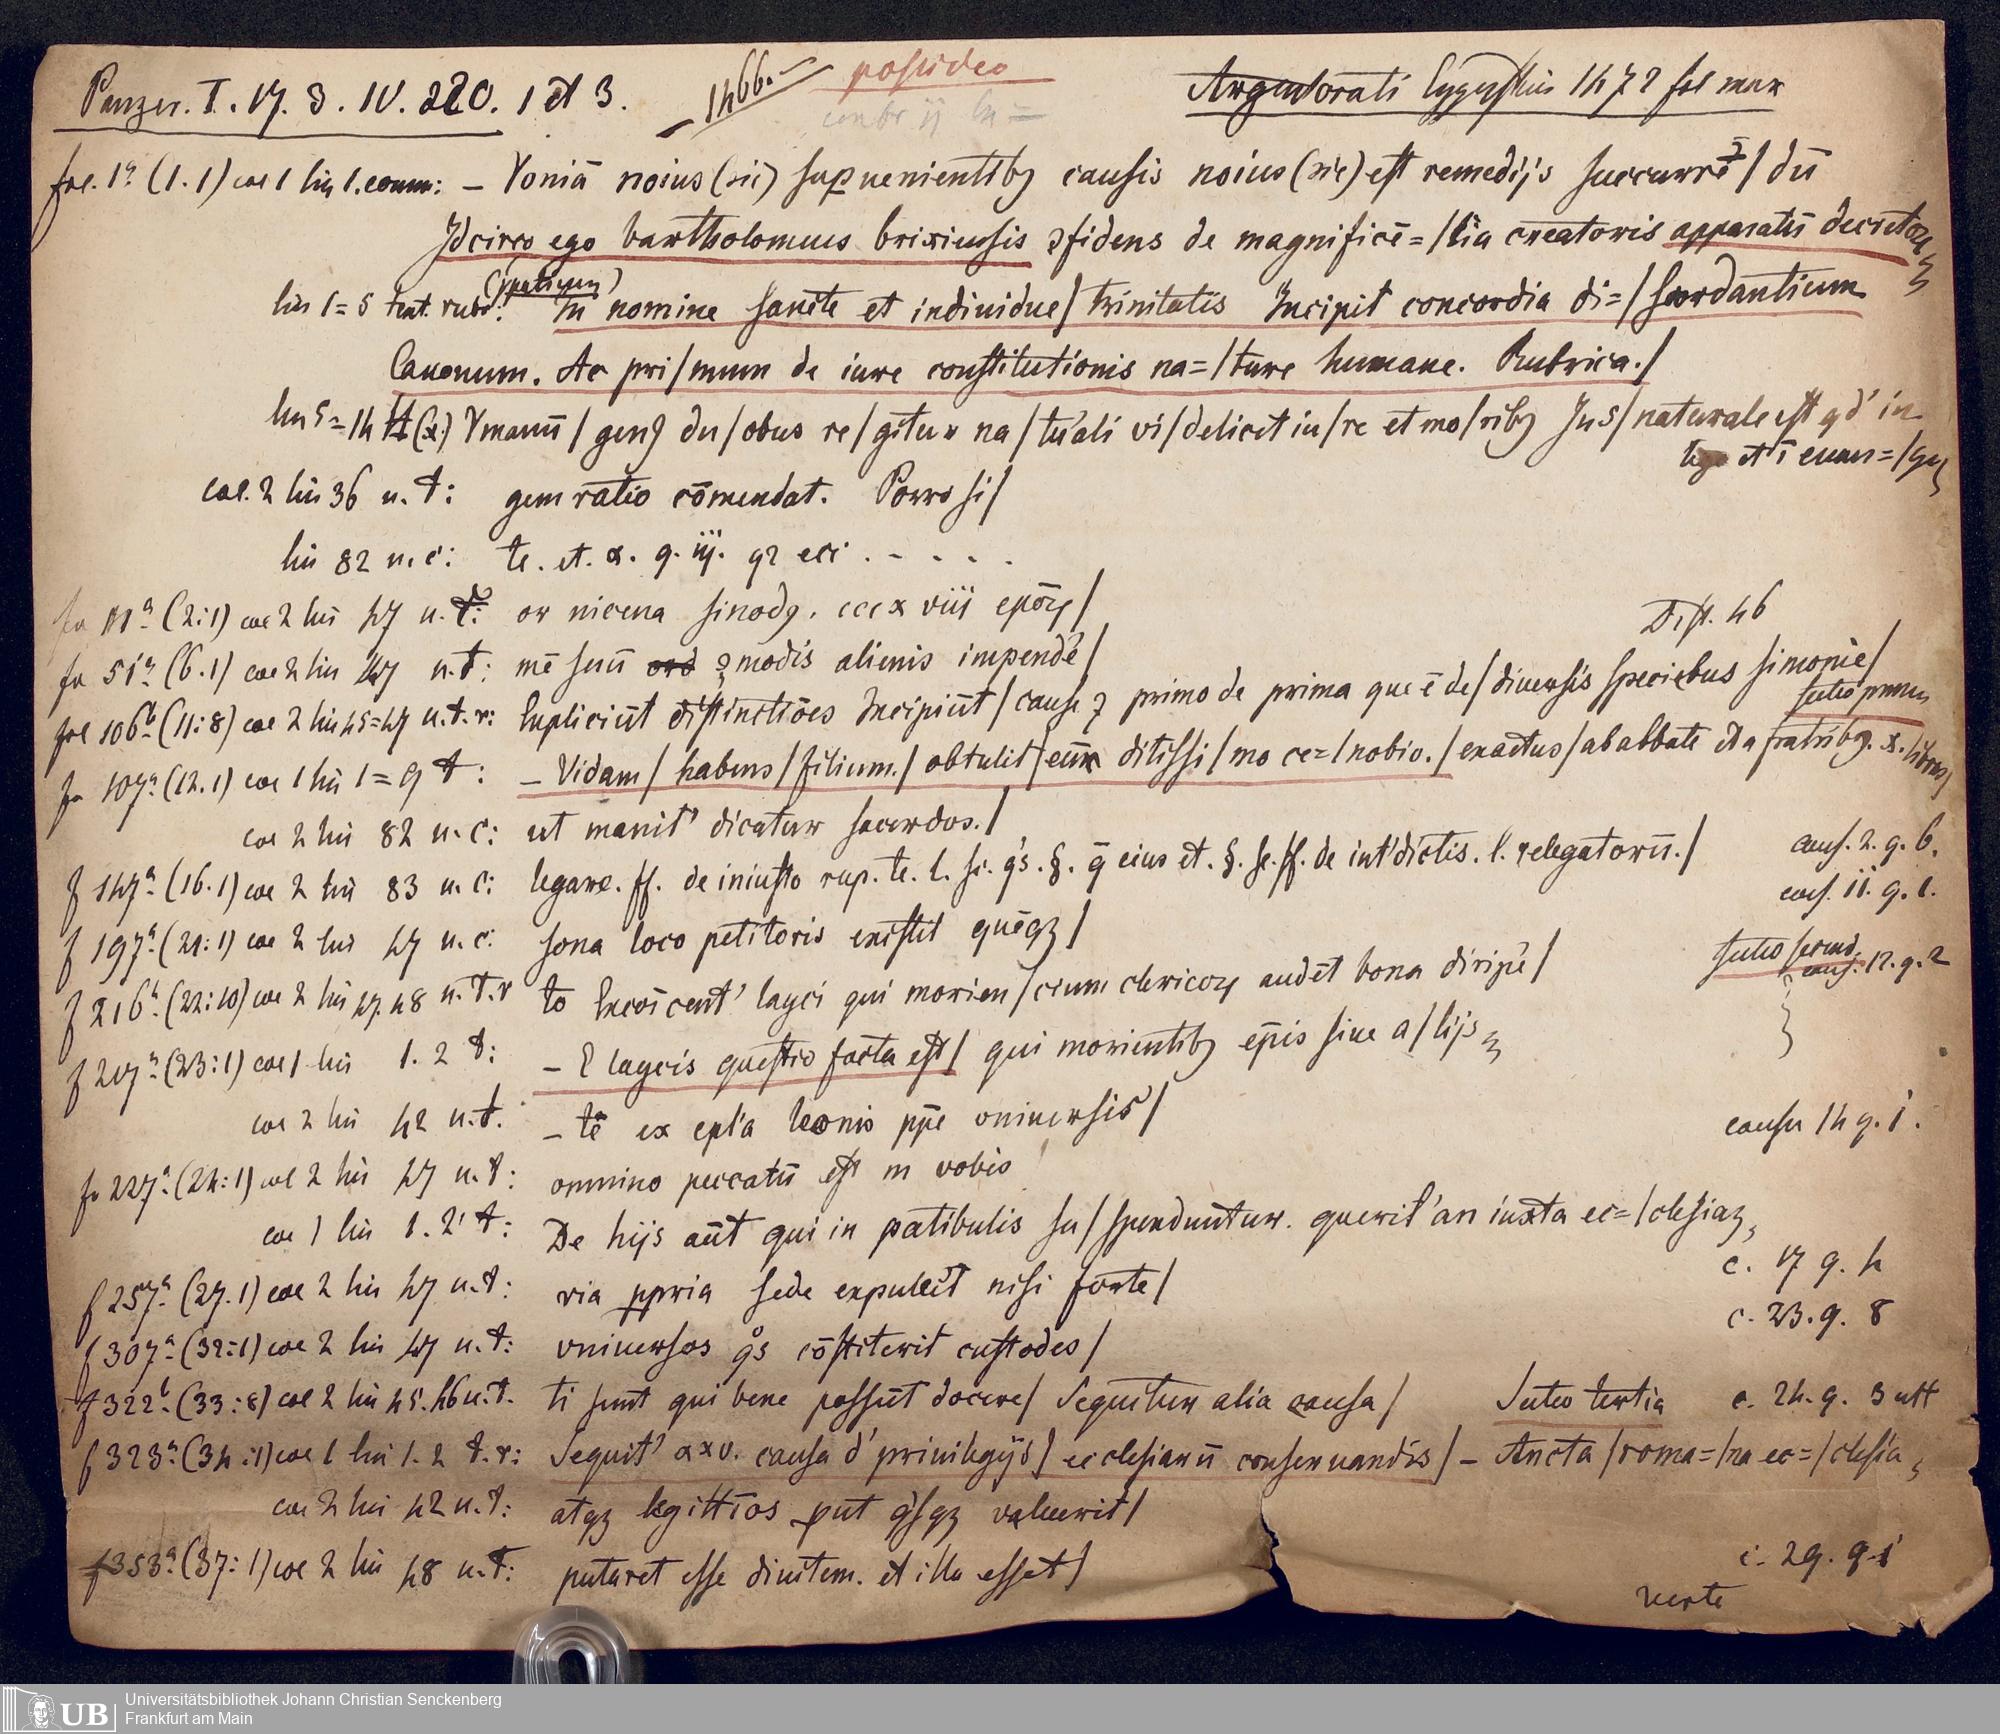 Panzer. I. 17. 3. IV. 220. 1 et 3.
1466.
possideo
Argentorati Eggesteiin 1472 fol max
fol. 1a (1.1) col 1 lin 1. comm: – Yoniā noius (sic) supuenientibʒ causis noius (sic) est remedijs succurrē / dū
Idcirco ego bartholomeus brixiensis ɔfidens de magnificē= / tia creatoris apparatū decretoꝝ
lin 1=5 text. rubr: In nomine sancte et indiuidue / trinitatis Incipit concordia di= / scordantium
Canonum. Ac pri / mum de iure constitutionis na= / ture humane. Rubrica. /
lin 5=14 H Vmanū / genꝰ du / obus re / gitur na / tu'ali vi / delicet iu / re et mo / ribʒ Jus / naturale est qd' in
lege et ī euan= / ge
col. 2 lin 36 u. t: gem ratio cōmendat. Porro si /
lin 82 u. c: te. et. x. q. iij. qꝛ eci . - - - .
fo 11a (2:1) col 2 lin 47 u. t: or nicena sinodꝰ. cccxviij epōꝝ /
Dist. 46
fo 51a (6.1) col 2 lin 47 u.t: mē suū ɔmodis alienis impendē /
fol 106b (11:8) col 2 lin 45=47 u.t.r: Expliciūt distinctiōes Incipiūt / cause ⁊ primo de prima que ē de / diuersis speciebus simonie /
fo 107a (12.1) col 1 lin 1=9 t: – Vidam / habens / filium. / obtulit / eūm ditissi / mo ce= / nobio. / exactus / ab abbate et a fratribʒ. x. libras
col 2 lin 82 u. c: ut manit' dicatur sacerdos. /
caus. 2. q. 6.
f 147a (16.1) col 2 lin 83 u. c: legare. ff. de iniusto rup. te. l. si. q's. §. q̄ eius et. §. se. ff. de int'dictis. l. relegatorū. /
caus. 11. q. 1.
f 197a (21:1) col 2 lin 47 u. c: sona loco petitoris existit quēqʒ /
caus. 12. q. 2
f 216b (22:10) col 2 lin 47. 48 u.t.r to layci qui morien / cium clericoꝝ audēt bona diripē /
f 217a (23:1) col 1 lin 1. 2 t: – E laycis questio facta est / qui morientibʒ ep̄is siue a / lijs
col 2 lin 42 u.t. – tē ex epl'a leonis ppē vniuersis /
causa 14 q. 1.
fo 227a (24:1) col 2 lin 47 u. t: omnino peccatū est in vobis
col 1 lin 1. 2 t: De hijs aūt qui in patibulis su / spenduntur. querit' an iuxta ec= / clesiaꝝ
c. 17 q. 4
f 257a (27.1) col 2 lin 47 u. t: ria ꝓpria sede expulerit nisi forte /
c. 23. q. 8
f 307a (32:1) col 2 lin 47 u. t: vniuersos qͦs cōstiterit custodes /
f 322b (33:8) col 2 lin 45. 46 u.t. ti sunt qui bene possūt docere / Sequitur alia causa / c. 24. q. 3 ult
f 323a (34:1) col 1 lin 1. 2 t.r: Sequit' xxv. causa d' priuilegijs / ecclesiarū conseruandis / – Ancta / roma= / na ec= / clesia
col 2 lin 42 u. t: atqʒ legittīos put q'sqʒ valuerit /
c. 29. q. 1
f 353a (37:1) col 2 lin 48 u.t: putaret esse diuitem. et illa esset /
verte
Universitätsbibliothek Johann Christian Senckenberg
UB Frankfurt am Main